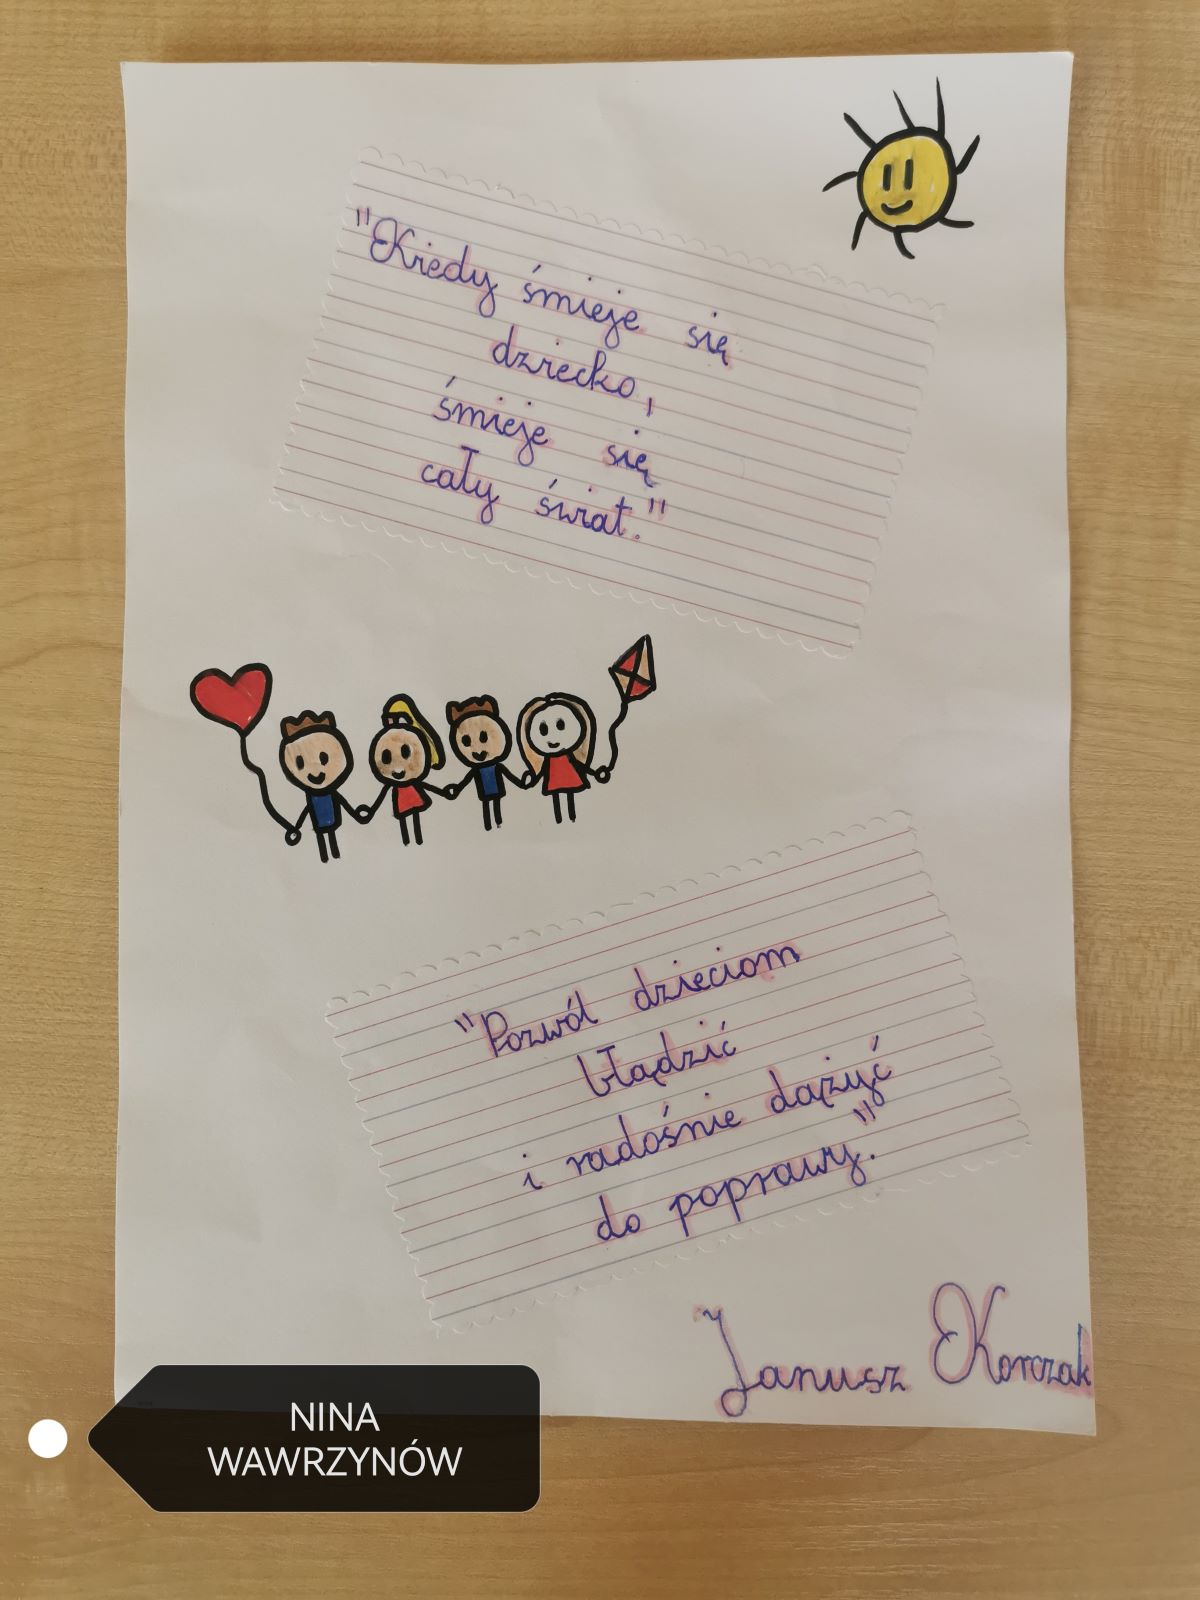 "Kiedy śmieje się
dziecko,
śmieje się
cały świat."
"Pozwól dzieciom
błądzić
i radośnie dążyć
do poprawy."
Janusz Korczak
NINA
WAWRZYNÓW